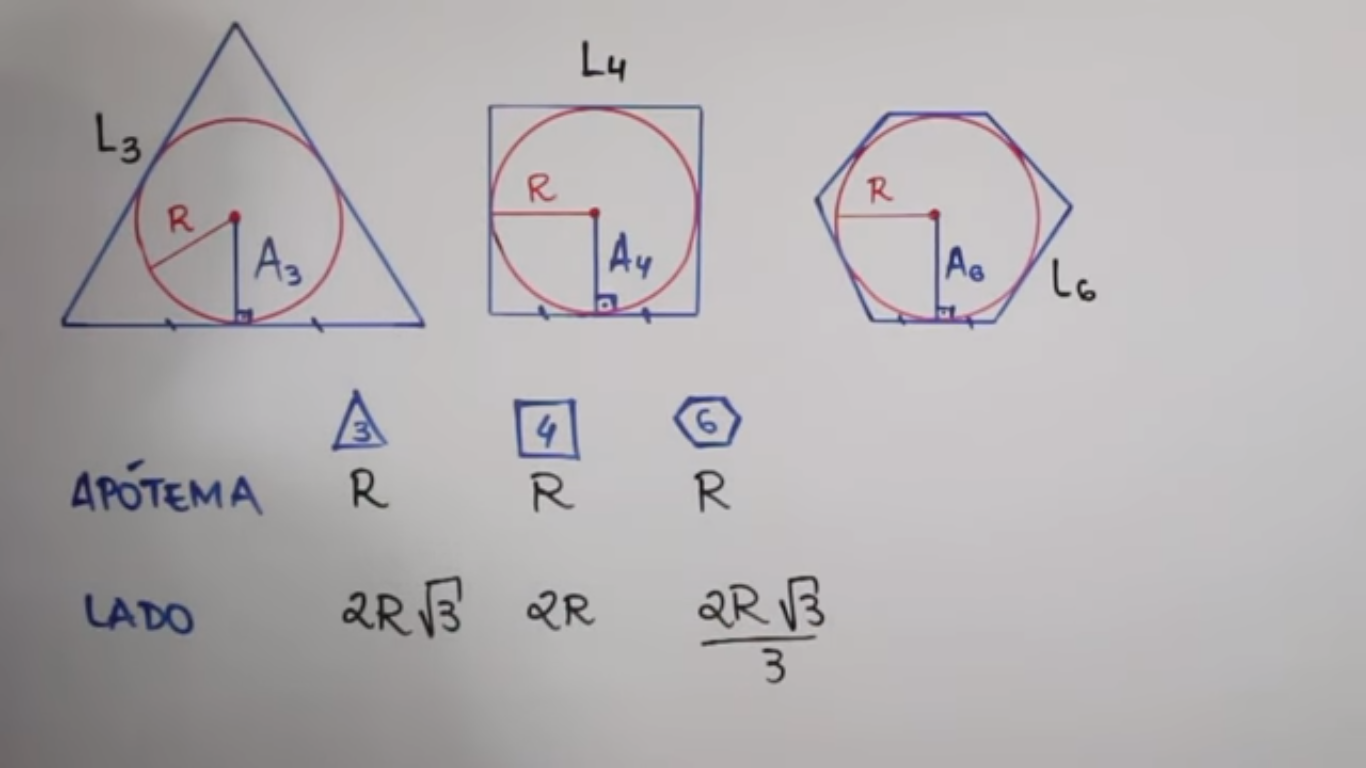 L4
L3
R
A3
R
A4
R
A6
L6
3 4 6
APÓTEMA R R R
LADO 2R√3 2R 2R√3/3